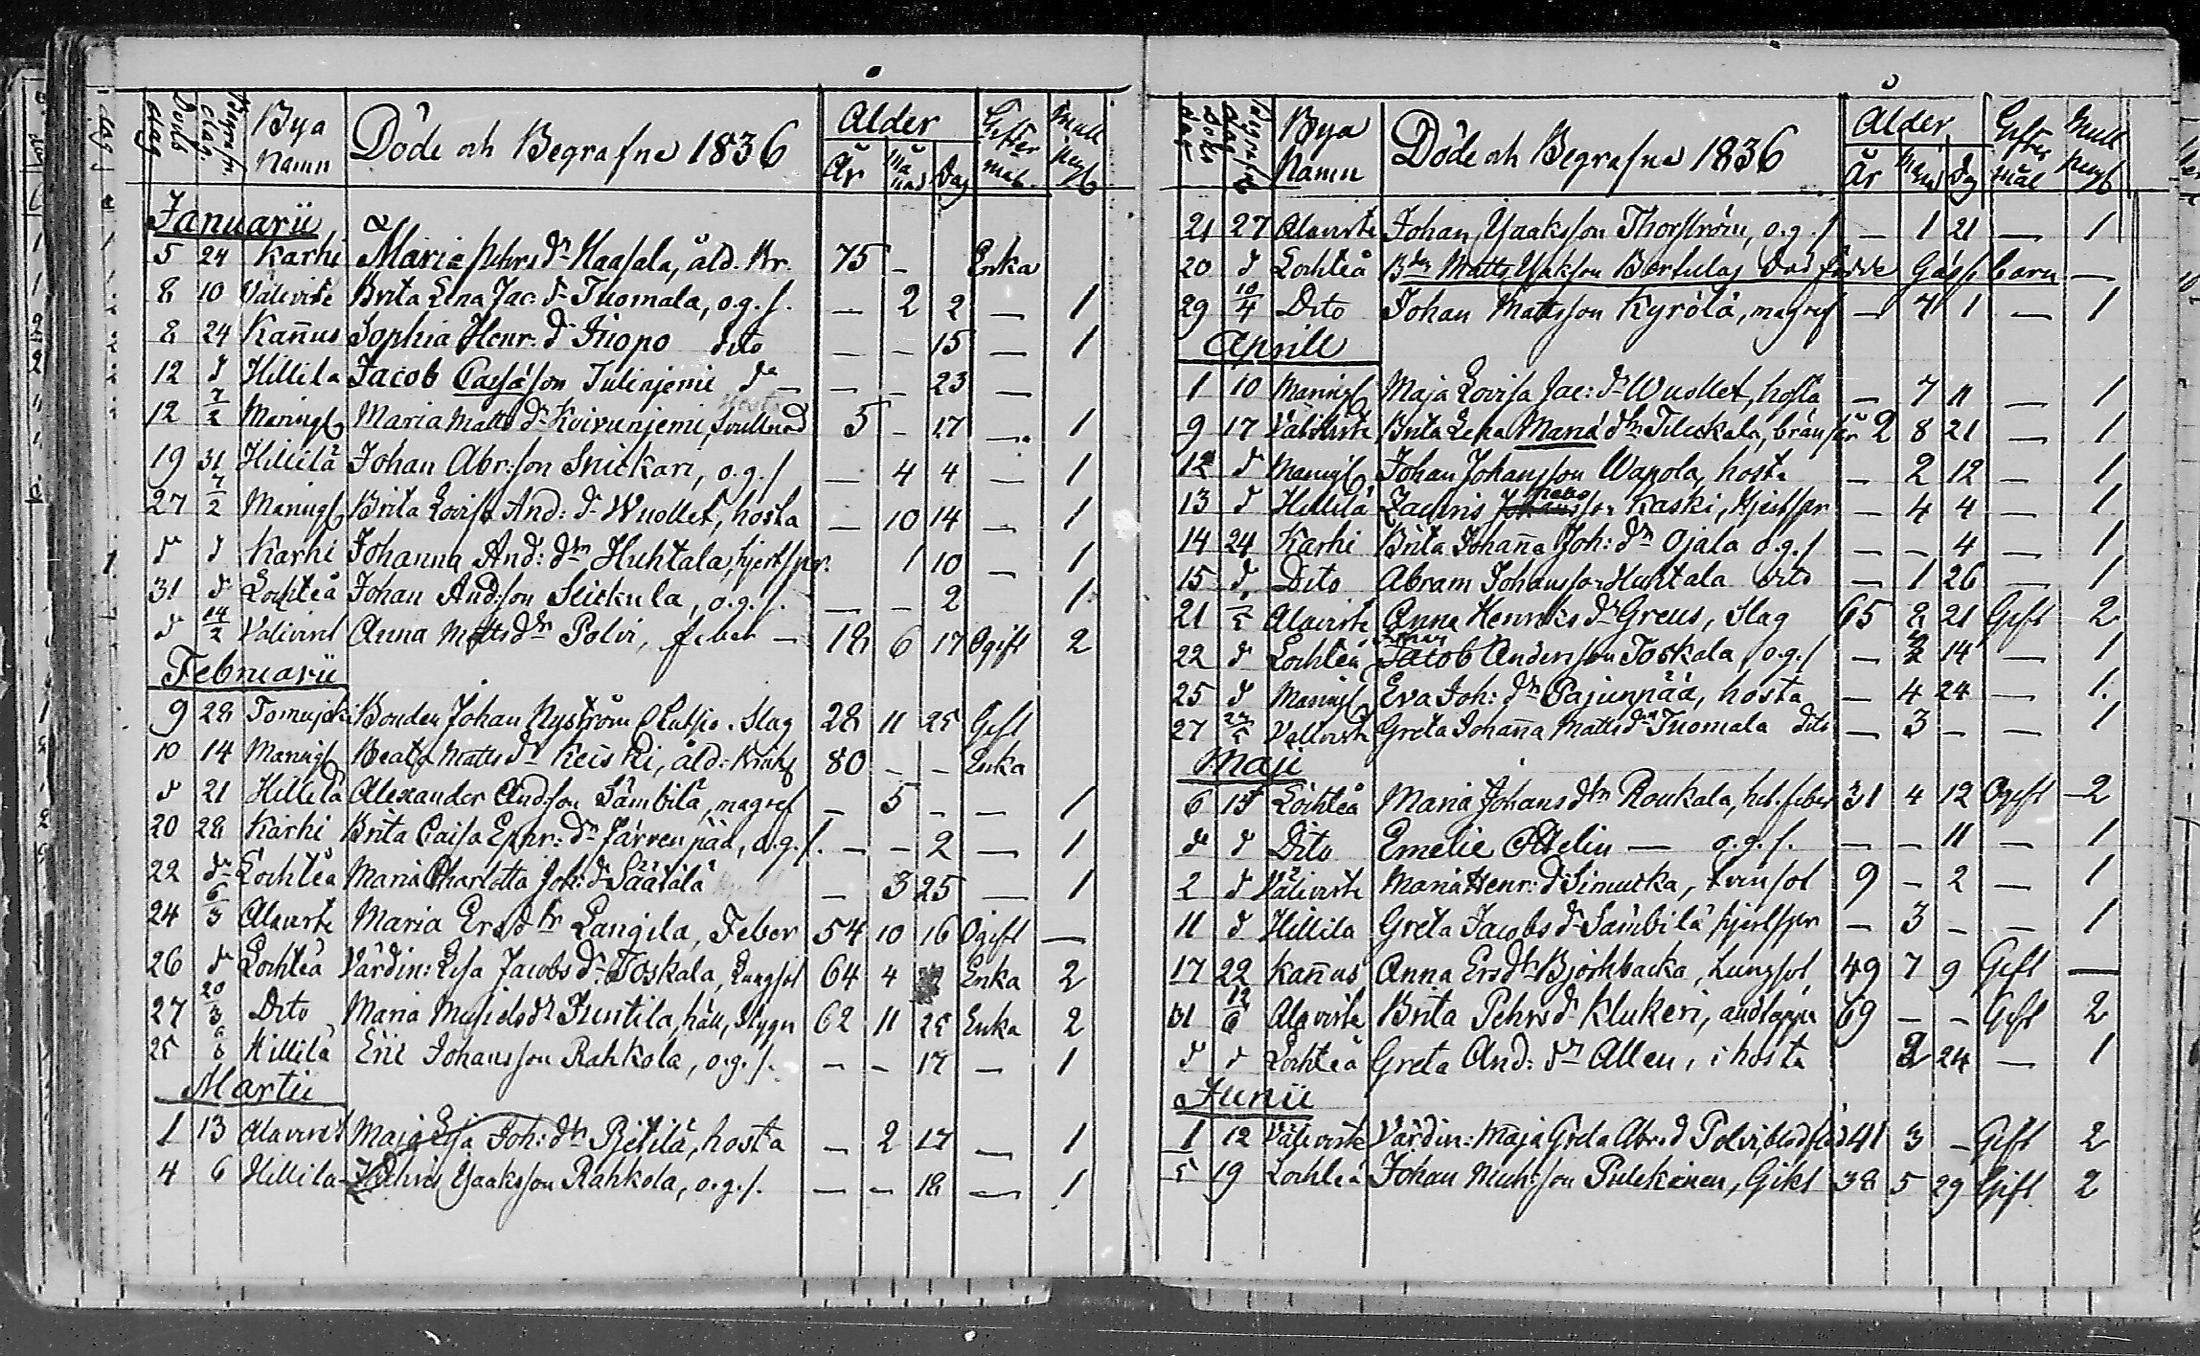 Döds dag Begrafn. dag. Bya Namn Döde och Begrafne 1836 Ålder År Månad Dag Giftermål Mull peng
Januarii
5 24 Karhi Maria Pehrs dr Haasala, åld. Kr. 75 – Enka
8 10 Välivirte Brita Lena Jac: dr Tuomala, o.g.s. – 2 2 – 1
8 24 Kan̄us Sophia Henr: dr Knopo dito – – 15 – 1
12 d Hillilä Jacob Carlsson Tulinjemi do – – 23 –
12 7/2 Maningl Maria Matts dr Koivunjemi, svullnad 5 – 17 – 1
19 31 Hillilä Johan Abr:son Snickari, o.g.s – 4 4 – 1
27 7/2 Maningl Brita Lovisa And: dr Wuollet, hosta – 10 14 – 1
d d Karhi Johanna And: dtr Huhtala, hjertspr. 1 10 – 1
31 d Lochteå Johan And:son Slickula, o.g.s. – – 2 1
d 14/2 Välivirt Anna Matts dr Polvi, feber – 18 6 17 Ogift 2
Februarii
9 28 Tomujoki Bonden Johan Nyström Slag 28 11 25 Gift
10 14 Maningl Beata Matts dr Keiski, åld: Kräkl 80 – – Enka
d 21 Hillilä Alexander And:son Sämbilä, magref – 5 – – 1
20 28 Karhi Brita Caisa Ephr: dr Järvenpää, o.g.s. – – 2 – 1
22 do Lochteå Maria Charlotta Joh: dr Säätälä – 3 25 – 1
24 6/3 Alavirte Maria Ers dtr Langila, Feber 54 10 16 Ogift –
26 d Lochteå Värdin: Lisa Jacobs dr Toskala, Lungsot 64 4 Enka 2
27 20/3 Dito Maria dr Juntila, håll, Stygn 62 11 25 Enka 2
25 6/3 Hillilä Eric Johansson Rahkola, o.g.s. – – 17 – 1
Martii
1 13 Alavirt Maja Lisa Joh: dtr Pietilä, hosta – 2 17 – 1
4 6 Hillilä Zachris Isaaksson Rahkola, o.g.s. – – 18 – 1
Döds dag Begrafn dag Bya Namn Döde och Begrafne 1836 Ålder År Månad Dag Giftermål Mull peng
21 27 Alavirte Johan Isaaksson Thorström, o.g.s – 1 21 – 1
20 d Lochteå Bdn Matts Isaksson Bertulas död födde Gåsse barn –
29 10/4 Dito Johan Mattsson Kyrölä, magref – 7 1 – 1
Aprill
1 10 Maningl Maja Lovisa Jac: dr Wuollet, hosta – 7 11 – 1
9 17 Välivirte Brita Lena Maria dtr Tileskala, 2 8 21 – 1
12 d Maningl Johan Johansson Wapola, hosta – 2 12 – 1
13 d Hillilä Zachris Johansson Kaski, Hjertspr – 4 4 – 1
14 24 Karhi Brita Johan̄a Joh: dr Ojala o.g.s – – 4 – 1
15 d. Dito Abram Johansson Huhtala dito – 1 26 – 1
21 Alavirte Anna Henriks dr Greus, Slag 65 8 21 Gift 2
22 d Lochteå Jacob Andersson Toskala, o.g.s – 2 14 – 1
25 d Maningl Eva Joh: dtr Pajunpää, hosta – 4 24 – 1.
27 Välivirte Greta Johan̄a Matts dr Tuomala dito – 3 – – 1
Maji
6 15 Lochteå Maria Johans dtr Roukala, het.feber 31 4 12 Ogift 2
d d Dito Emelie Attelin – o.g.s. – – 11 – 1
2 d Välivirte Maria Henr: dr Simucka, tvinsot 9 – 2 – 1
11 d Hillilä Greta Jacobs dr Sämbilä hjertspr – 3 – – 1
17 22 Kan̄us Anna Ers dtr Björkbacka, Lungsot 49 7 9 Gift –
31 12/6 Alavirte Brita Pehrs dr Klukeri, andtäppa 69 – – Gift 2
d d Lochteå Greta And: dtr Allen, i hosta 2 24 – 1
Junii
1 12 Välivirte Värdin: Maja Greta Abr. d Polvi, blodflöd 41 3 – Gift 2
5 19 Lochteå Johan Mich:son Pulckinen, Gikt 38 5 29 Gift 2